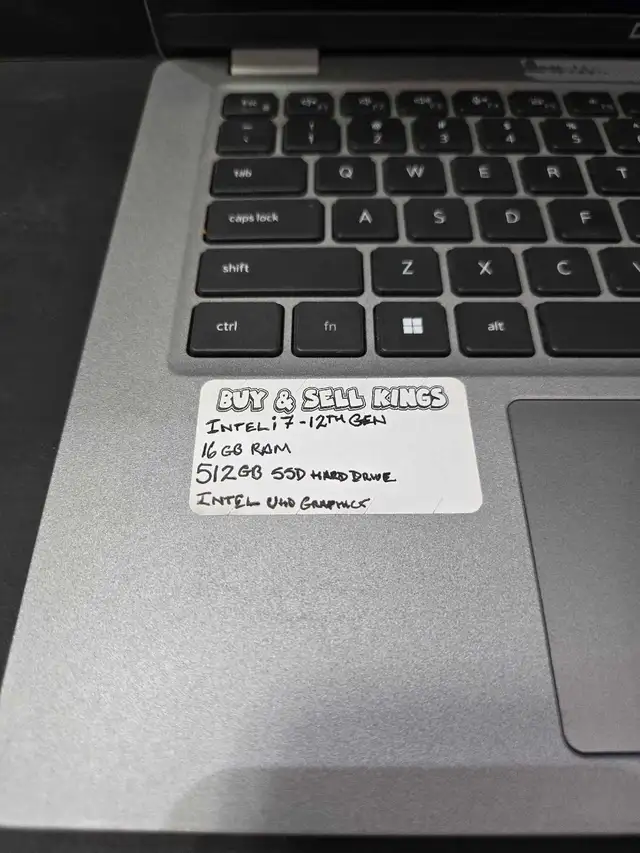 esc
F1
F2
F3
F4
F5
~
`
!
1
@
2
#
3
$
4
%
5
tab
Q
W
E
R
T
caps lock
A
S
D
F
shift
Z
X
C
V
ctrl
fn
alt
BUY & SELL KINGS
INTEL i7 - 12TH GEN
16 GB RAM
512GB SSD HARD DRIVE
INTEL UHD GRAPHICS